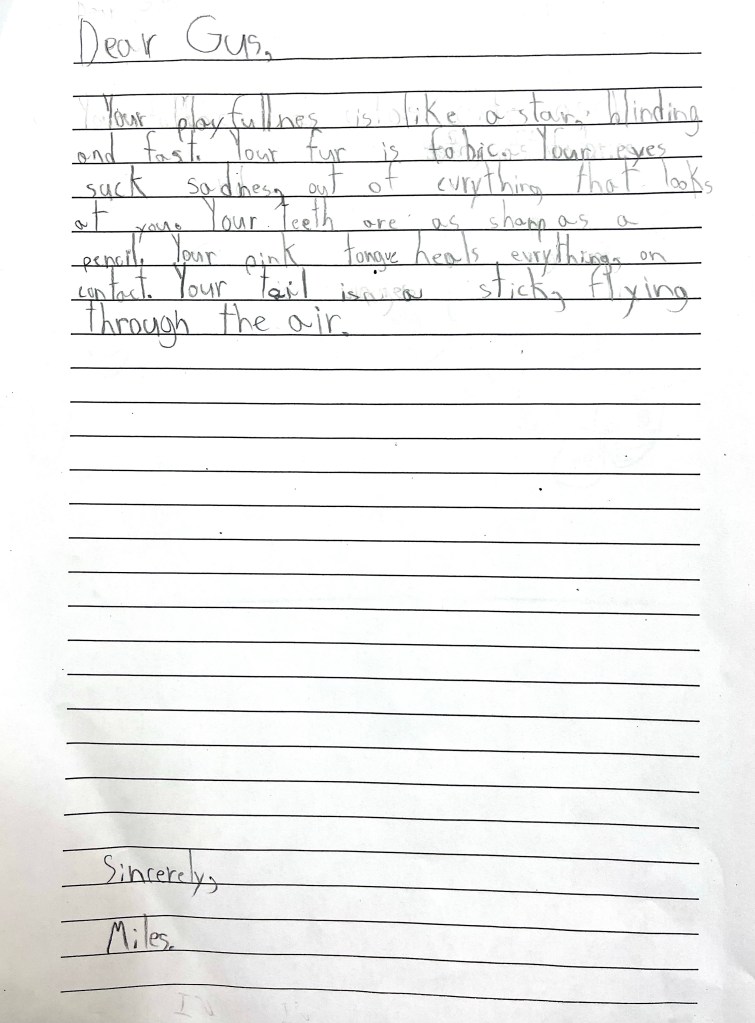 Dear Gus,
Your playfullnes is like a star, blinding
and fast. Your fur is fabic. Your eyes
suck sadnes, out of evrything that looks
at you. Your teeth are as sharp as a
pencil. Your pink tongue heals evrything, on
contact. Your tail is a stick, flying
through the air.
Sincerely,
Miles.